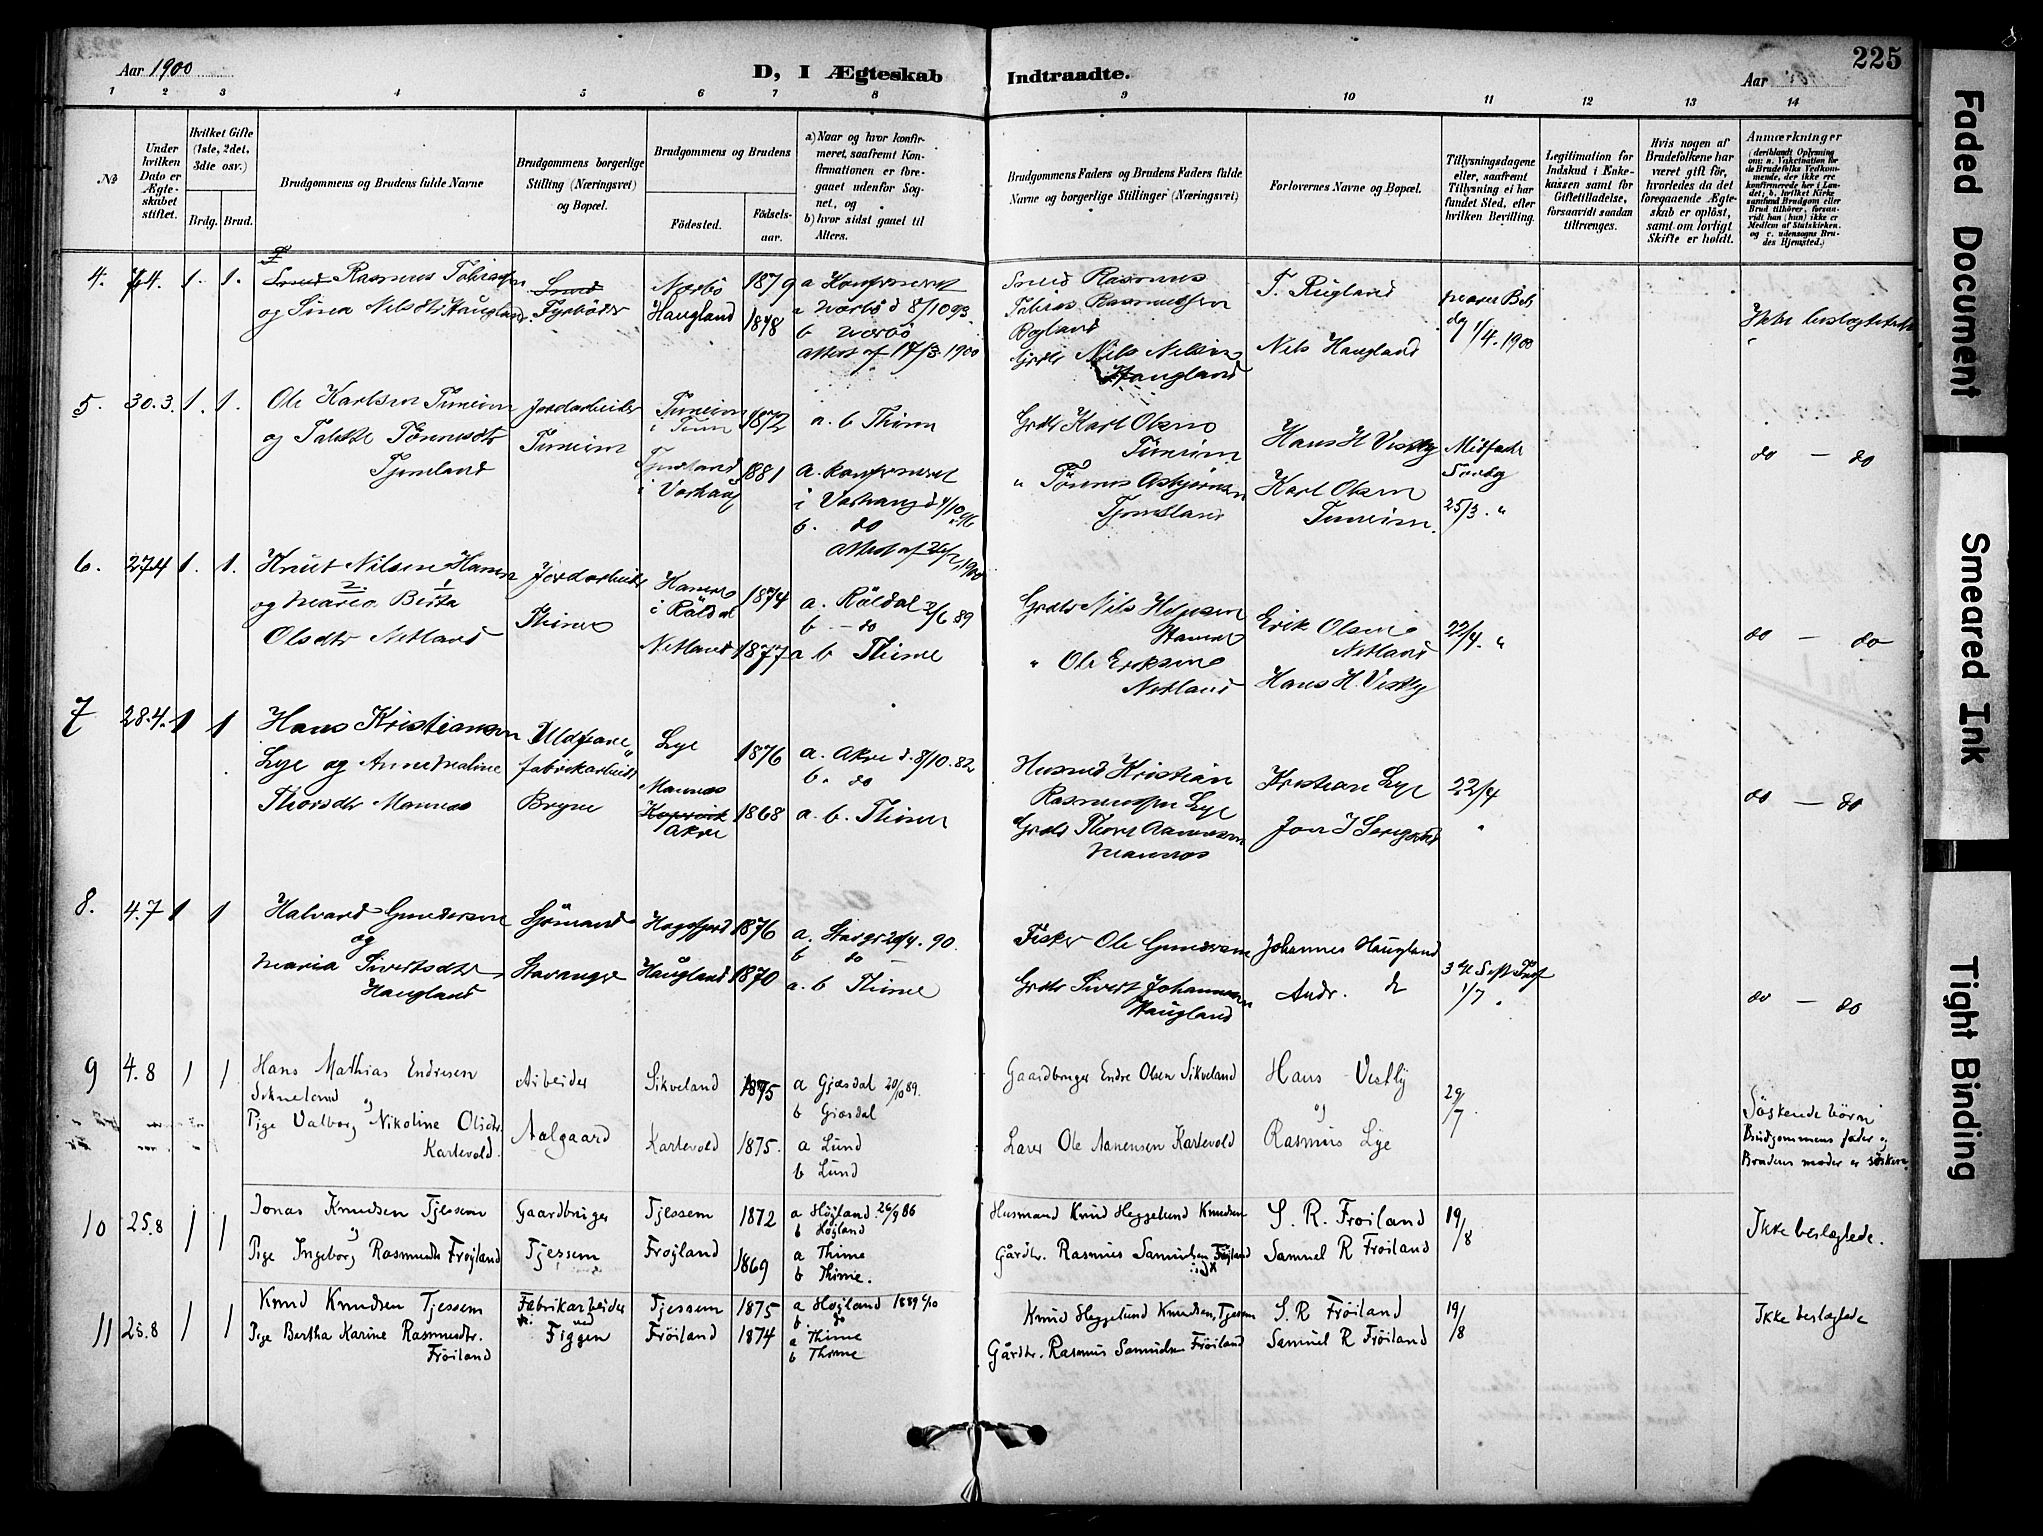 225
Aar 1900
D, I Ægteskab Indtraadte.
Aar
1 2 3 4 5 6 7 8 9 10 11 12 13 14
№
Under hvilken Dato er Ægteskabet stiftet.
Hvilket Gifte (1ste, 2det, 3die osv.)
Brdg. Brud.
Brudgommens og Brudens fulde Navne
Brudgommens borgerlige Stilling (Næringsvei) og Bopæl.
Brudgommens og Brudens
Fødested.
Fødselsaar.
a) Naar og hvor konfirmeret, saafremt Konfirmationen er foregaaet udenfor Sognet, og
b) hvor sidst gaaet til Alters.
Brudgommens Faders og Brudens Faders fulde Navne og borgerlige Stillinger (Næringsvei)
Forlovernes Navne og Bopæl.
Tillysningsdagene eller, saafremt Tillysning ei har fundet Sted, efter hvilken Bevilling.
Legitimation for Indskud i Enkekassen samt for Giftetilladelse, forsaavidt saadan tiltrænges.
Hvis nogen af Brudefolkene har været gift før, hvorledes da det foregaaende Ægteskab er opløst, samt om lovligt Skifte er holdt.
Anmærkninger
(deriblandt Oplysning om: a. Vakcination for de Brudefolks Vedkommende, der ikke ere konfirmerede her i Landet; b. hvilket Kirkesamfund Brudgom eller Brud tilhører, forsaavidt han (hun) ikke er Medlem af Statskirken, og c. udensogns Brudes Hjemsted.)
4. 1. 1. Rasmus Tobiassen
og Sina Nelsdtr Haugland
Smed
Fyrbøder
Nærbø 1879
Haugland 1878
a Konfirmeret
Nærbø d 8/10 93
b Nærbø
Attest af 17/3 1900
Smed Rasmus
Tobias Rasmussen
Rogland
Grdbr Nils Nilsen
Haugland
T. Rugland
Nels Haugland
1/4. 1900
Ikke beslægtede
5. 30.3. 1. 1. Ole Karlsen Tuneim
og Talette Tønnesdtr
Tjemsland
Jordarbeider
Tuneim
Tuneim
i Time 1872
Tjemsland
i Varhaug 1881
a. b Thime
a. konfirmeret
i Varhaug d 4/10 96
b. do
Grdbr Karl Olsen
Tuneim
" Tønnes Asbjørnsen
Tjemsland
Hans H Vestly
Karl Olsen
Tuneim.
Midfaste
Søndag
25/3. "
do — do
6. 27.4 1. 1. Knut Nilsen Hamre
og Maria Berta
Olsdtr Netland
Jordarbeider
Thime
Hamre
i Røldal 1874
Netland 1877
a. Røldal 2/6 89
b — do
a b Thime
Grdbr Nils Hansen
Hamre
" Ole Eriksen
Netland
Erik Olsen
Netland
Hans H. Vestly
22/4. "
do — do
7 28.4. 1 1 Hans Kristiansen
Lye og Anne Maline
Thorsdtr Mannes
Uldvare
fabrikarbeider
Bryne
Lye 1876
Mannes
Kopervik
Akre 1868
a. Akre d. 8/10. 82
b. do
a. b. Thime
Husmd Kristian
Rasmussen Lye
Grdbr Thore Aanensen
Mannes
Kristian Lye
Jon J Serigstad
22/4
"
do — do
8. 4.7 1 1 Halvard Gundersen
og
Maria Sivertsdtr
Haugland
Sjømand
Stavanger
Høgsfjord 1876
Haugland 1870
a. Stavgr 20/4. 90.
b do —
a. b Thime
Fisker Ole Gundersen
Grdbr Sivert Johannesen
Haugland
Johannes Haugland
Andr. do
1/7 "
do — do
9 4.8 1 1 Hans Mathias Endresen
Sikveland
og
Pige Valborg Nikoline Olsdtr.
Kartevold.
Arbeider
Aalgaard
Sikveland 1875
Kartevold 1875.
a Gjæsdal 20/10 89.
b Gjæsdal
a Lund
b Lund
Gaardbruger Endre Olsen Sikveland
Lærer Ole Aanensen Kartevold
Hans Vestly
og
Rasmus Lye
29/7
Søskende børn
Brudgommens fader og
Brudens moder er søskene.
10 25.8 1 1 Jonas Knudsen Tjessem
og
Pige Ingeborg Rasmusdtr Frøyland
Gaardbruger
Tjessem
Tjessem 1872
Frøyland 1869
a Høyland 26/9 86
b Høyland
a Thime
b Thime.
Husmand Knud Heggelund Knudsen
Gårdbr. Rasmus Samuelsen Frøyland
S. R. Frøiland
Samuel R Frøiland
19/8
Ikke beslægtede.
11 25.8 1 1 Knud Knudsen Tjessem
Pige Bertha Karine Rasmusdtr.
Frøiland
Fabrikarbeider
ved
Figgen
Tjessem 1875
Frøiland 1874
a Høyland 1889 6/10
b. do
a Thime
b Thime
Knud Heggelund Knudsen, Tjessem
Gårdbr. Rasmus Samuelsen Frøiland
S. R Frøiland
Samuel R Frøiland
19/8
Ikke beslægtede
Faded Document
Smeared Ink
Tight Binding